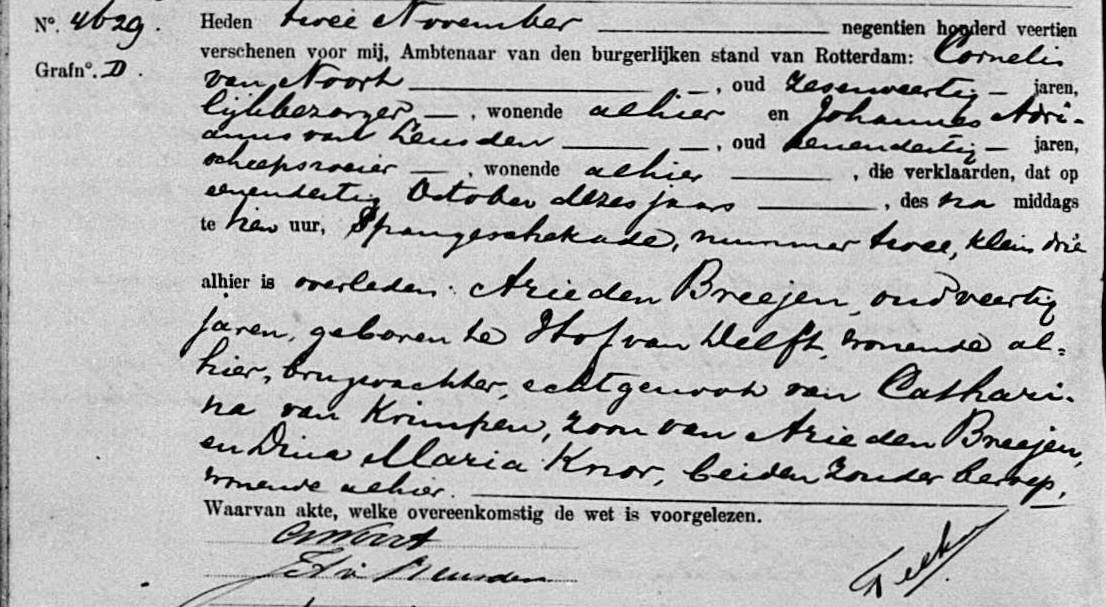 N°. 4629.
Grafn°. D.
Heden twee November negentien honderd veertien
verschenen voor mij, Ambtenaar van den burgerlijken stand van Rotterdam: Cornelis
van Noort, oud zesenveertig jaren,
lijkbezorger, wonende alhier en Johannes Adri-
anus van Heusden, oud eenendertig jaren,
scheepsroeier, wonende alhier, die verklaarden, dat op
eenendertig October dezes jaars, des na middags
te uur, Spangeschekade, nummer twee, klein drie
alhier is overleden. Arie den Breejen, oud veertig
jaren, geboren te Hof van Delft, wonende al=
hier, brugwachter, echtgenoot van Cathari-
na van Krimpen, zoon van Arie den Breejen,
en Dina Maria Knor, beiden zonder beroep,
wonende alhier.
Waarvan akte, welke overeenkomstig de wet is voorgelezen.
CvNoort